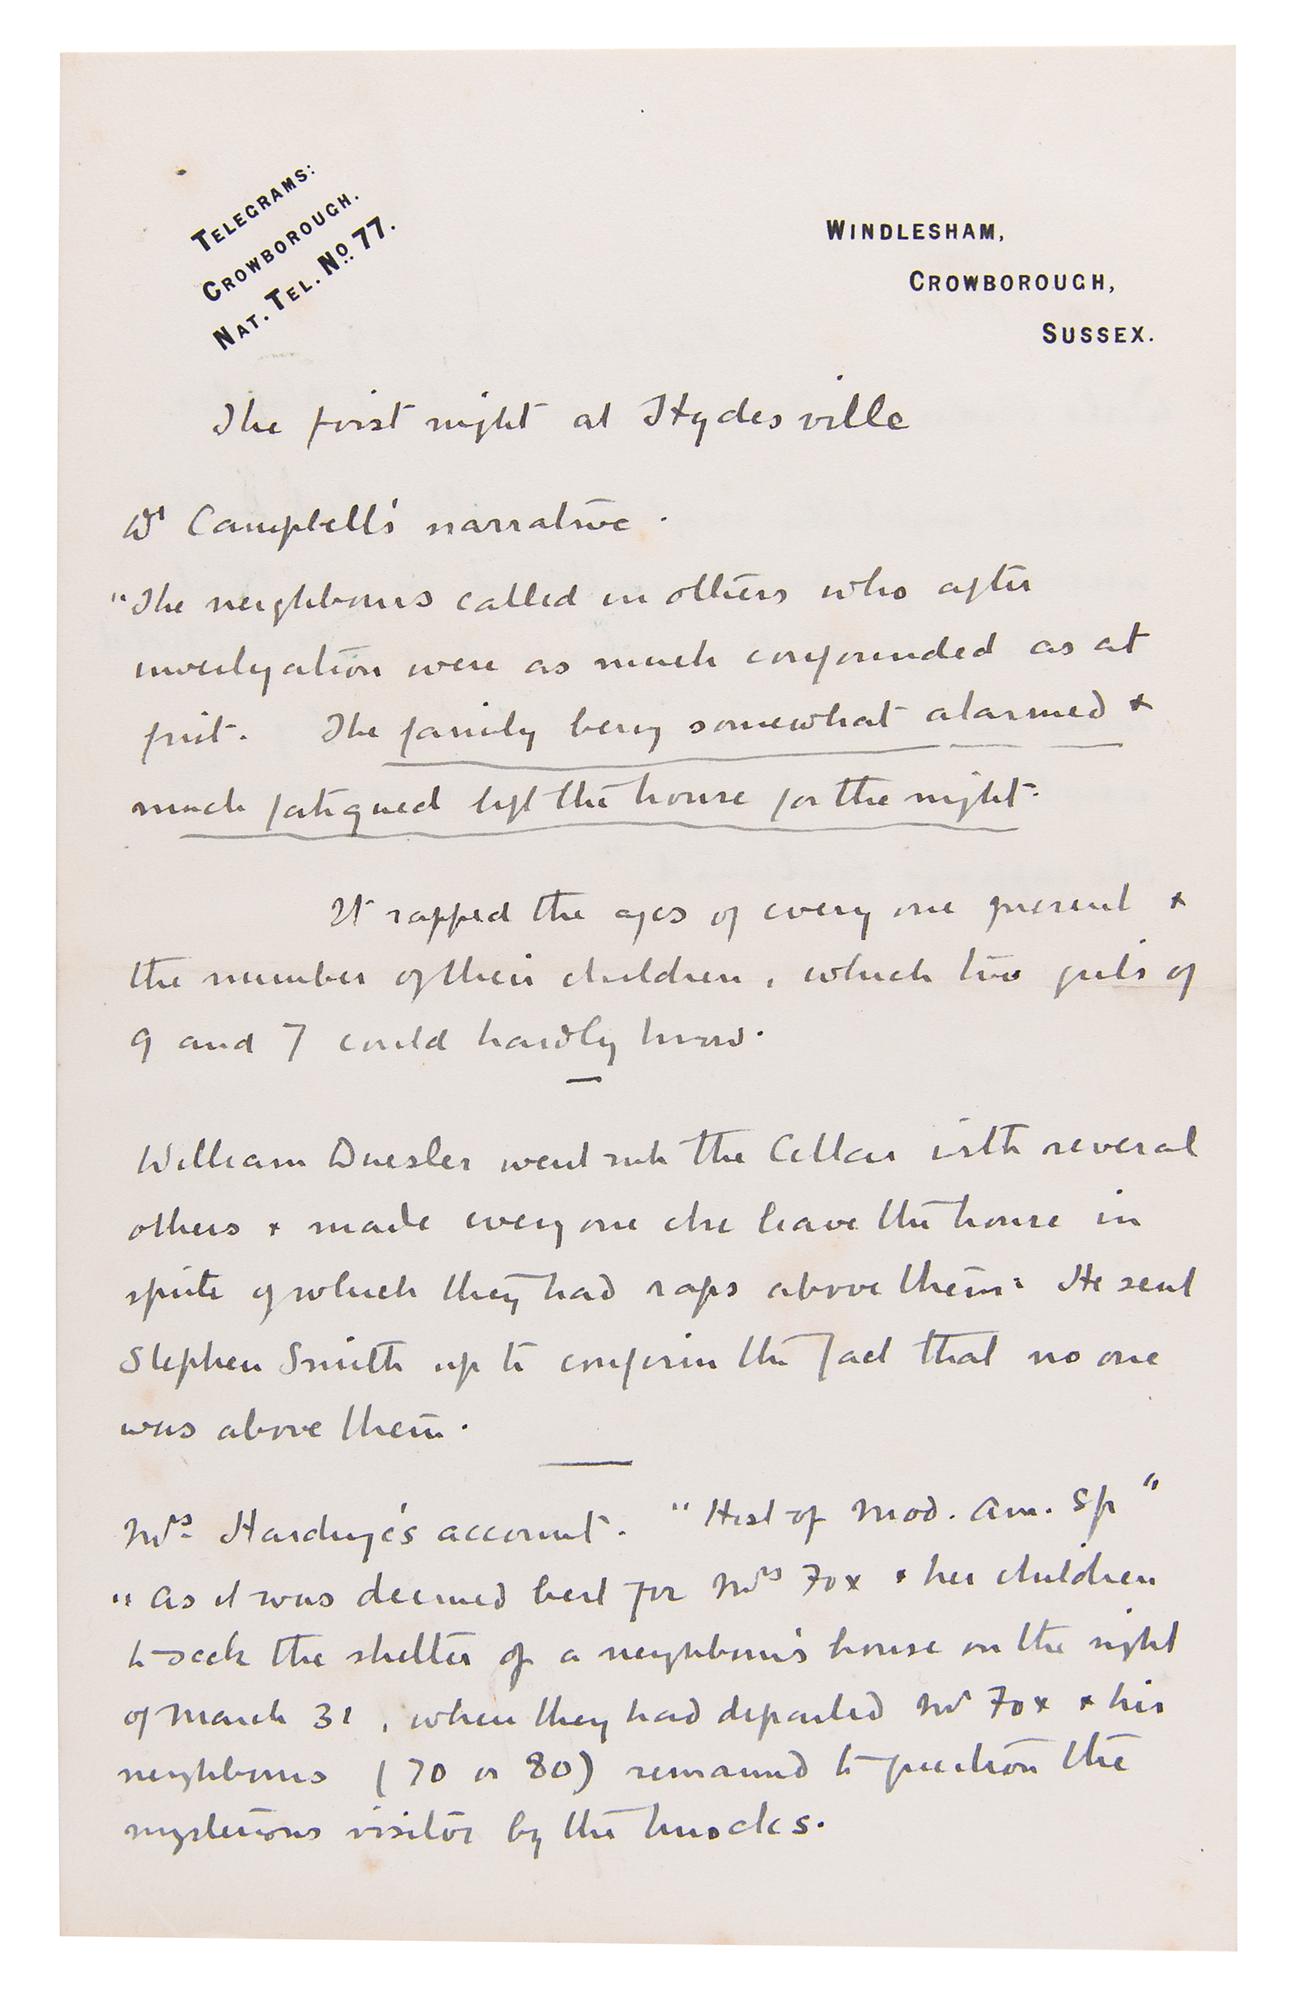 TELEGRAMS:
CROWBOROUGH.
NAT. TEL. No. 77.
WINDLESHAM,
CROWBOROUGH,
SUSSEX.
The first night at Hydesville
Dr Campbell's narrative.
"The neighbours called in others who after
investigation were as much confounded as at
first. The family being somewhat alarmed &
much fatigued left the house for the night.
It rapped the ages of every one present &
the number of their children, which two girls of
9 and 7 could hardly know.
William Duesler went into the Cellar with several
others & made every one else leave the house in
spite of which they had raps above them. He sent
Stephen Smith up to confirm the fact that no one
was above them.
Mrs Hardinge's account. "Hist of Mod. Am. Sp"
"As it was deemed best for Mrs Fox & her children
to seek the shelter of a neighbour's house on the night
of March 31, when they had departed Mr Fox & his
neighbours (70 or 80) remained to question the
mysterious visitor by the knocks.